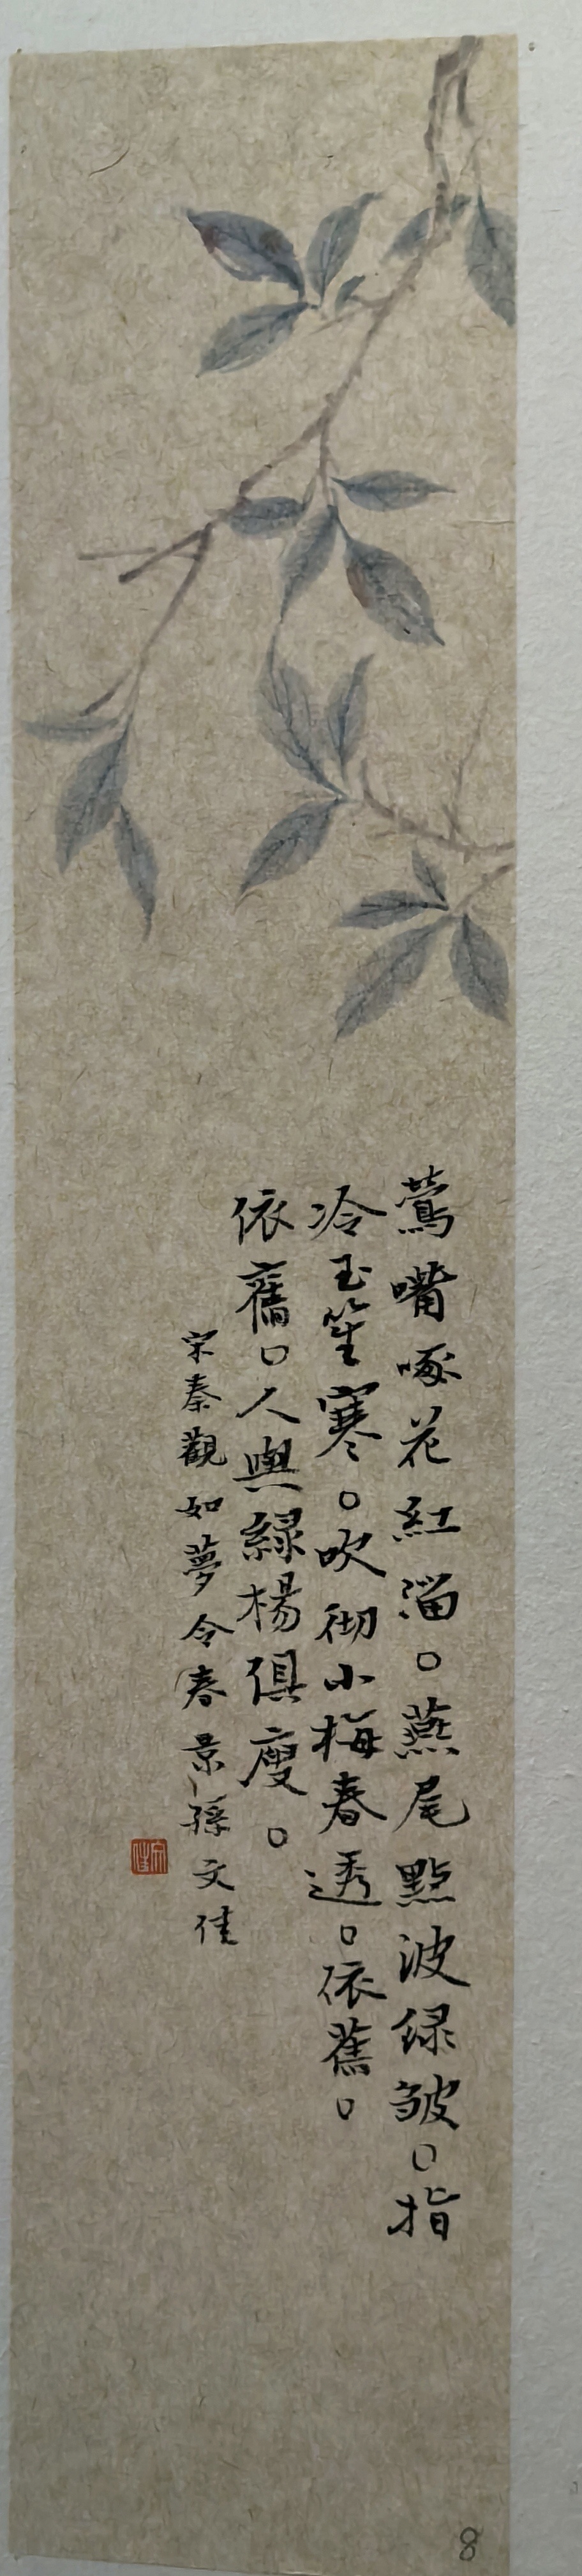 鶯嘴啄花紅溜。燕尾點波緑皱。指
冷玉笙寒。吹彻小梅春透。依舊。
依舊。人與緑楊俱瘦。
宋秦觀如夢令春景孫文佳
8